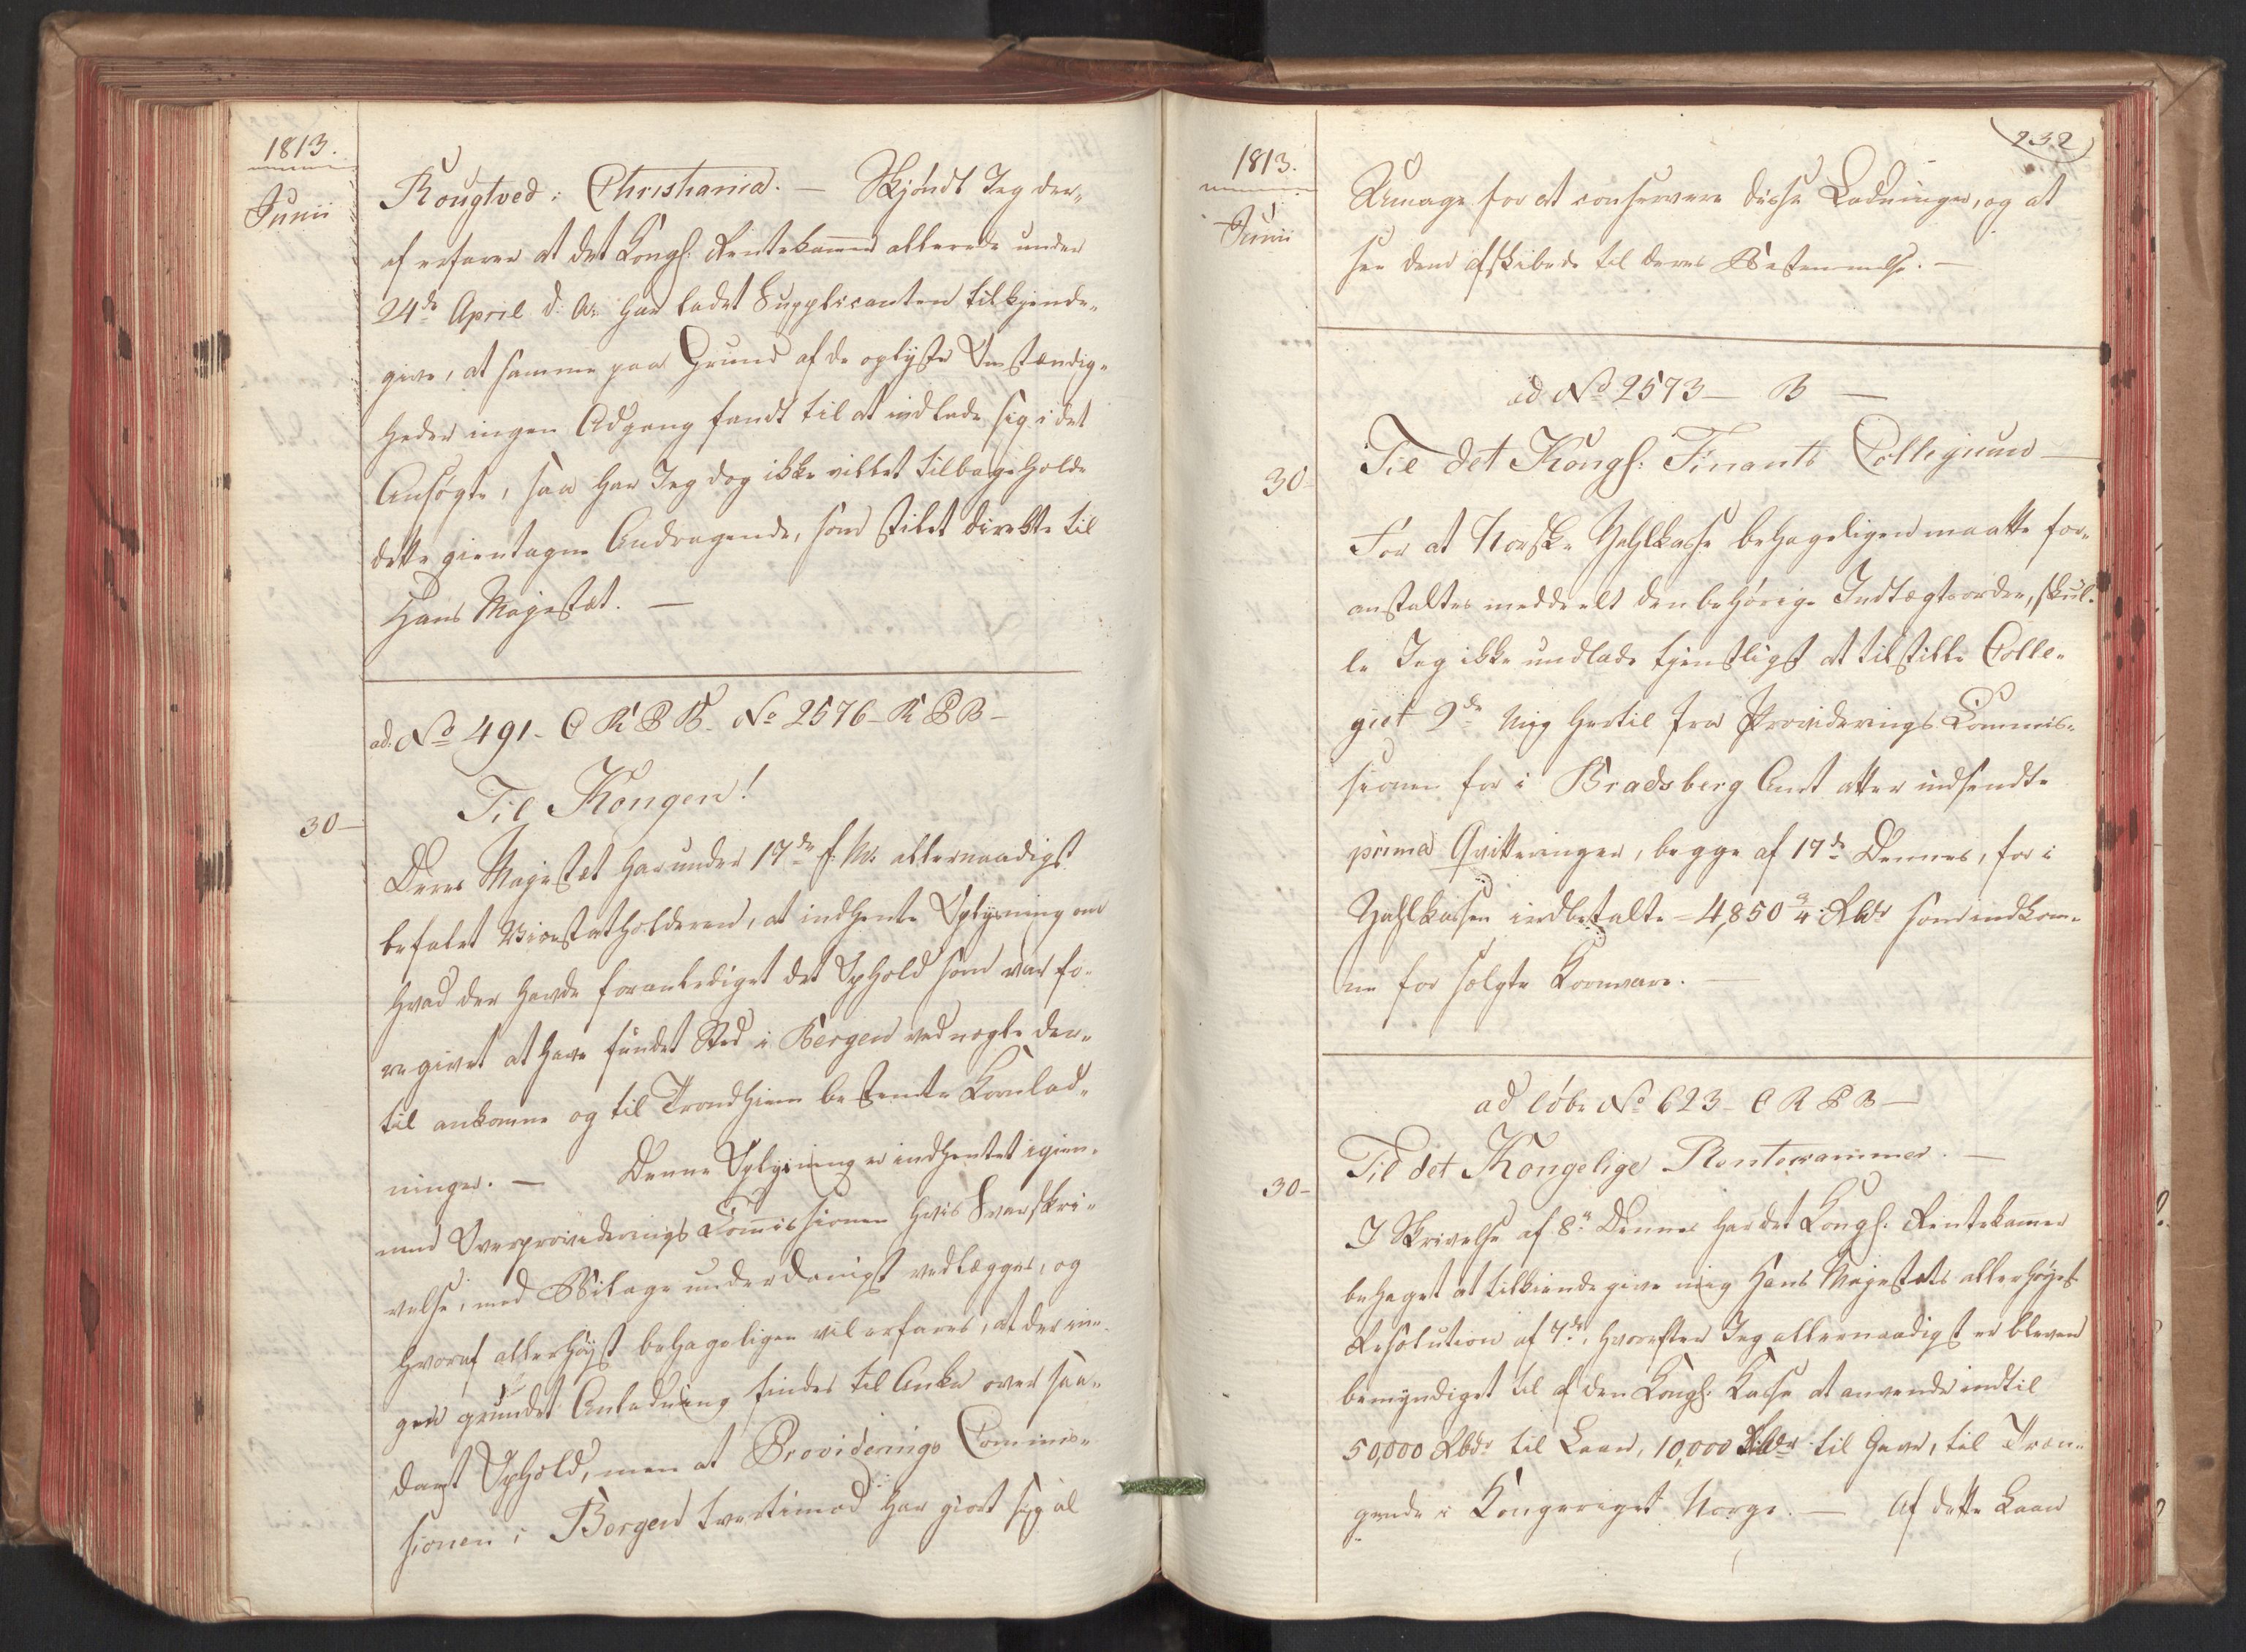 1813.
Junii
Rougtved i Christiania. — Skjöndt Jeg der-
af erfarer at det Kongl: Rentekammer allerede under
24de April d: A: har ladet Supplicanten tilkjende-
give, at samme paa Grund af de oplyste Omstændig-
heder ingen Adgang fandt til at indlade sig i det
Ansögte, saa har Jeg dog ikke villet tilbageholde
dette gientagne Andragende, som stilet direkte til
Hans Majestæt. —
ad No 491. C R P B. No 2576 - R P B -
Til Kongen!
30 —
Deres Majestæt har under 17de f: M: allernaadigst
befalet Vicestatholderen, at indhente Oplysning om
hvad der havde foranlediget det Ophold som var fo-
regivet at have fundet Sted i Bergen ved nogle der-
til ankomne og til Trondhiem bestemte Kornlad-
ninger. — Denne Oplysning er indhentet igien-
nem Overproviderings Commissionen hvis Svarskri-
velse, med Bilage underdanigst vedlægges, og
hvoraf allerhöyst behageligen vil erfares, at der in-
gen grundet Anledning findes til Anke over saa-
dant Ophold, men at Providerings Commis-
sionen i Bergen tvertimod har giort sig al
232
1813.
Junii
Umage for at conservere disse Ladninger, og at
see dem afskibede til deres Bestemmelse. —
ad No 2573 — B —
Til det Kongl: Finants Collegium —
30 -
For at Norske Zahlkasse behageligen maatte for-
anstaltes meddeelt den behörige Indtægtsorder, skul-
le Jeg ikke undlade tjenstligst at tilstille Colle-
giet 2de mig hertil fra Providerings Commis-
sionen for i Bradsberg Amt atter indsendte
prima Qvitteringer, begge af 17de Dennes, for i
Zahlkassen indbetalte = 4,850 3/4 Rbdr som indkom-
ne for solgte Kornvare. —
ad löbe No 623 - C R P B —
Til det Kongelige Rentekammer. —
30 -
I Skrivelse af 8de Dennes har det Kongl: Rentekammer
behaget at tilkiendegive mig Hans Majestæts allerhöyeste
Resolution af 7de, hvorefter Jeg allernaadigst er bleven
bemyndiget til af den Kongl: Kasse at anvende indtil
50,000 Rbdr til Laan, 10,000 Rbdr til Gave, til Træn-
gende i Kongeriget Norge. — Af dette Laan